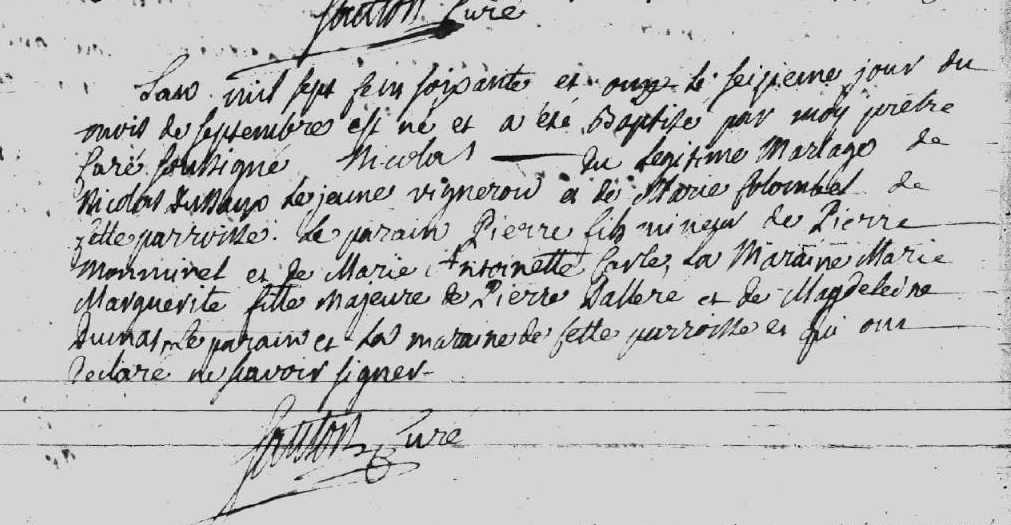 Curé
Lan mil sept sens soixante et onze le seizieme jour du
mois de septembre est né et a été Baptisé par moy prètre
Curé soussigné Nicolas du legitime Mariage de
Nicolas lejeune vigneron et de Marie Colombel de
cette parroisse. Le parain Pierre fils mineur de Pierre
et de Marie Antoinette Carle, La Maraine Marie
Marguerite fille Majeure de Pierre Dallere et de Magdeleine
Dumas, Le parain et La maraine de cette parroisse et qui ont
declaré ne savoir signer
Curé